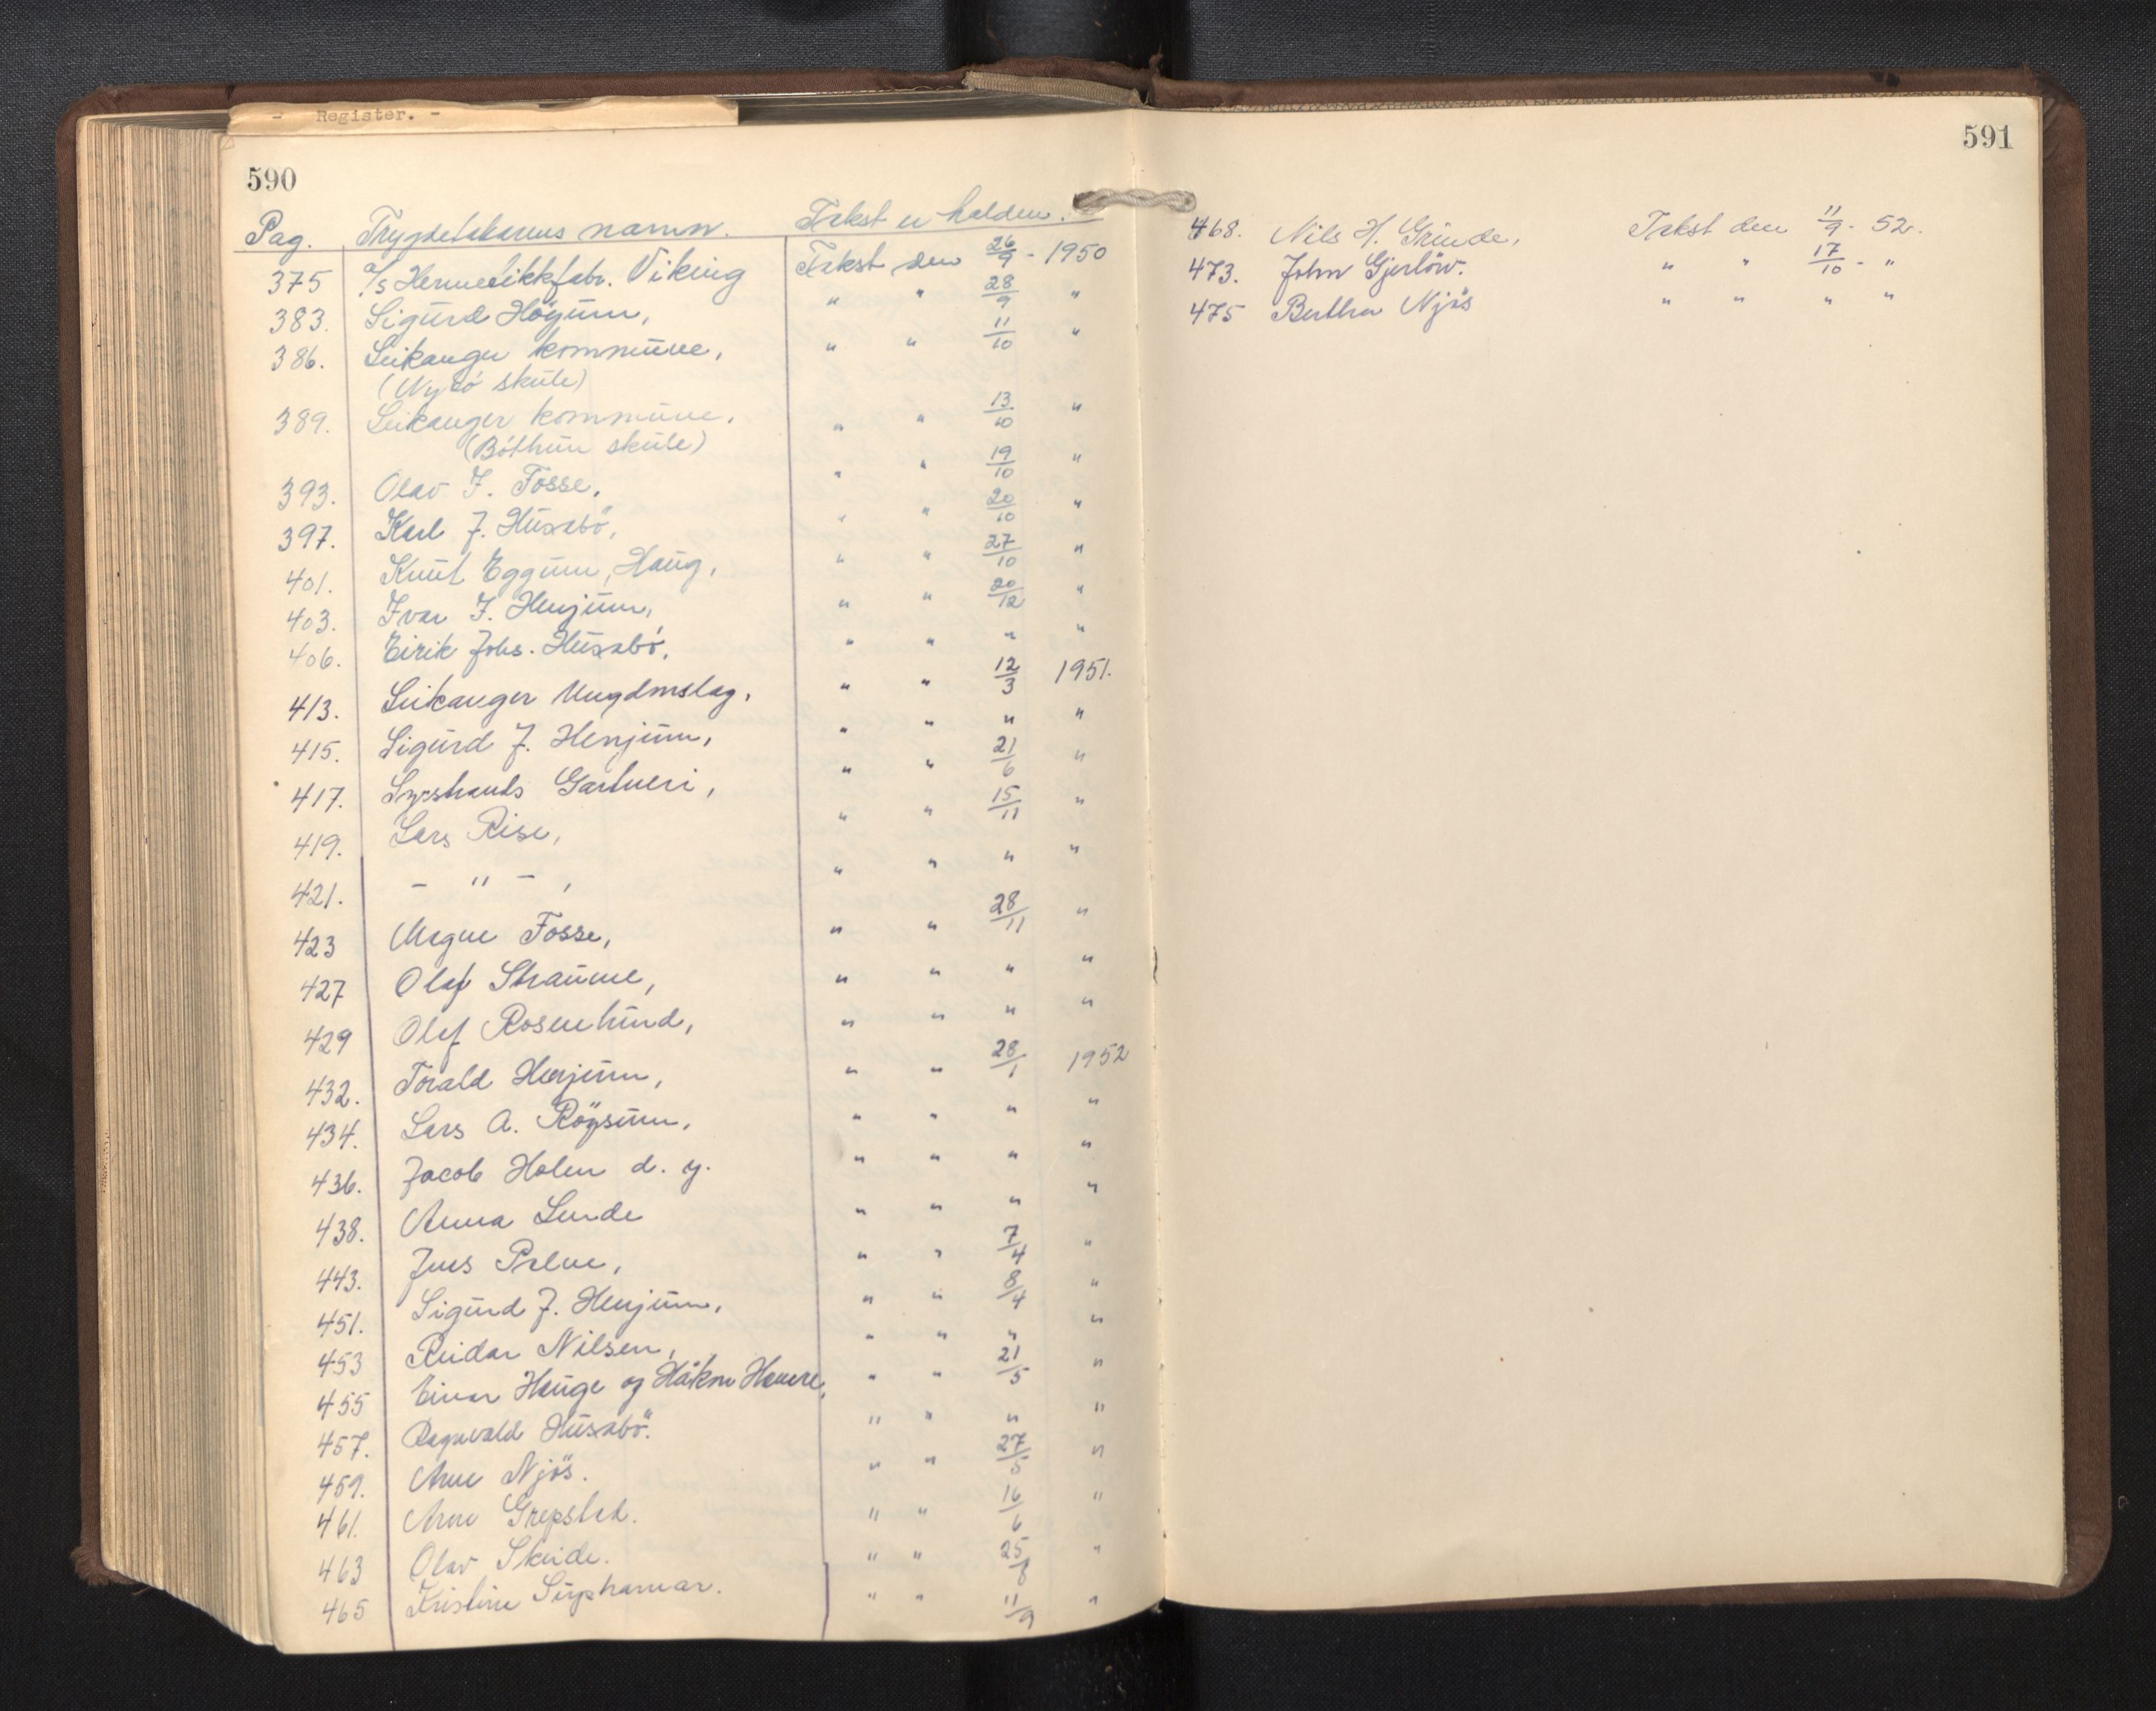 - Register. -
590
Pag. Trygdetakarens namn. Takst er halden.
375 A/s Hermetikkfabr. Viking Takst den 26/9 - 1950
383. Sigurd Høyum, " " 28/9 "
386. Leikanger kommune, " " 11/10 "
(Nybø skule)
389. Leikanger kommune, " " 13/10 "
(Bøthun skule)
393. Olav J. Fosse, " " 19/10 "
397. Karl J. Husabö, " " 20/10 "
401. Knut Eggum, Haug, " " 27/10 "
403. Ivar J. Henjum, " " 20/12 "
406. Eirik Johs. Husabø, " " " "
413. Leikanger Ungdmslag, " " 12/3 1951.
415. Sigurd J. Henjum, " " " "
417. Syrstrands Gartneri, " " 21/6 "
419. Lars Rise, " " 15/11 "
421. - " - , " " " "
423 Magne Fosse, " " 28/11 "
427 Olaf Straume, " " " "
429 Olaf Rosenlund, " " " "
432. Torald Henjum, " " 28/1 1952
434. Lars A. Röysum, " " " "
436. Jacob Holen d. y. " " " "
438. Anna Lunde " " " "
443. Jens Palne, " " 7/4 "
451. Sigurd J. Henjum, " " 8/4 "
453 Reidar Nilsen, " " " "
455 Einar Hauge og Håkon Hamre, " " 21/5 "
457. Ragnvald Husabö. " " " "
459. Arne Njös. " " 27/5 "
461. Arne Grepstad. " " 16/6 "
463 Olav Skeide. " " 25/8 "
465 Kristine Suphamar. " " 11/9 "
591
468. Nils H. Grinde, Takst den 11/9 - 52.
473. John Gjerlöw. " " 17/10 - "
475 Bertha Njös " " " "